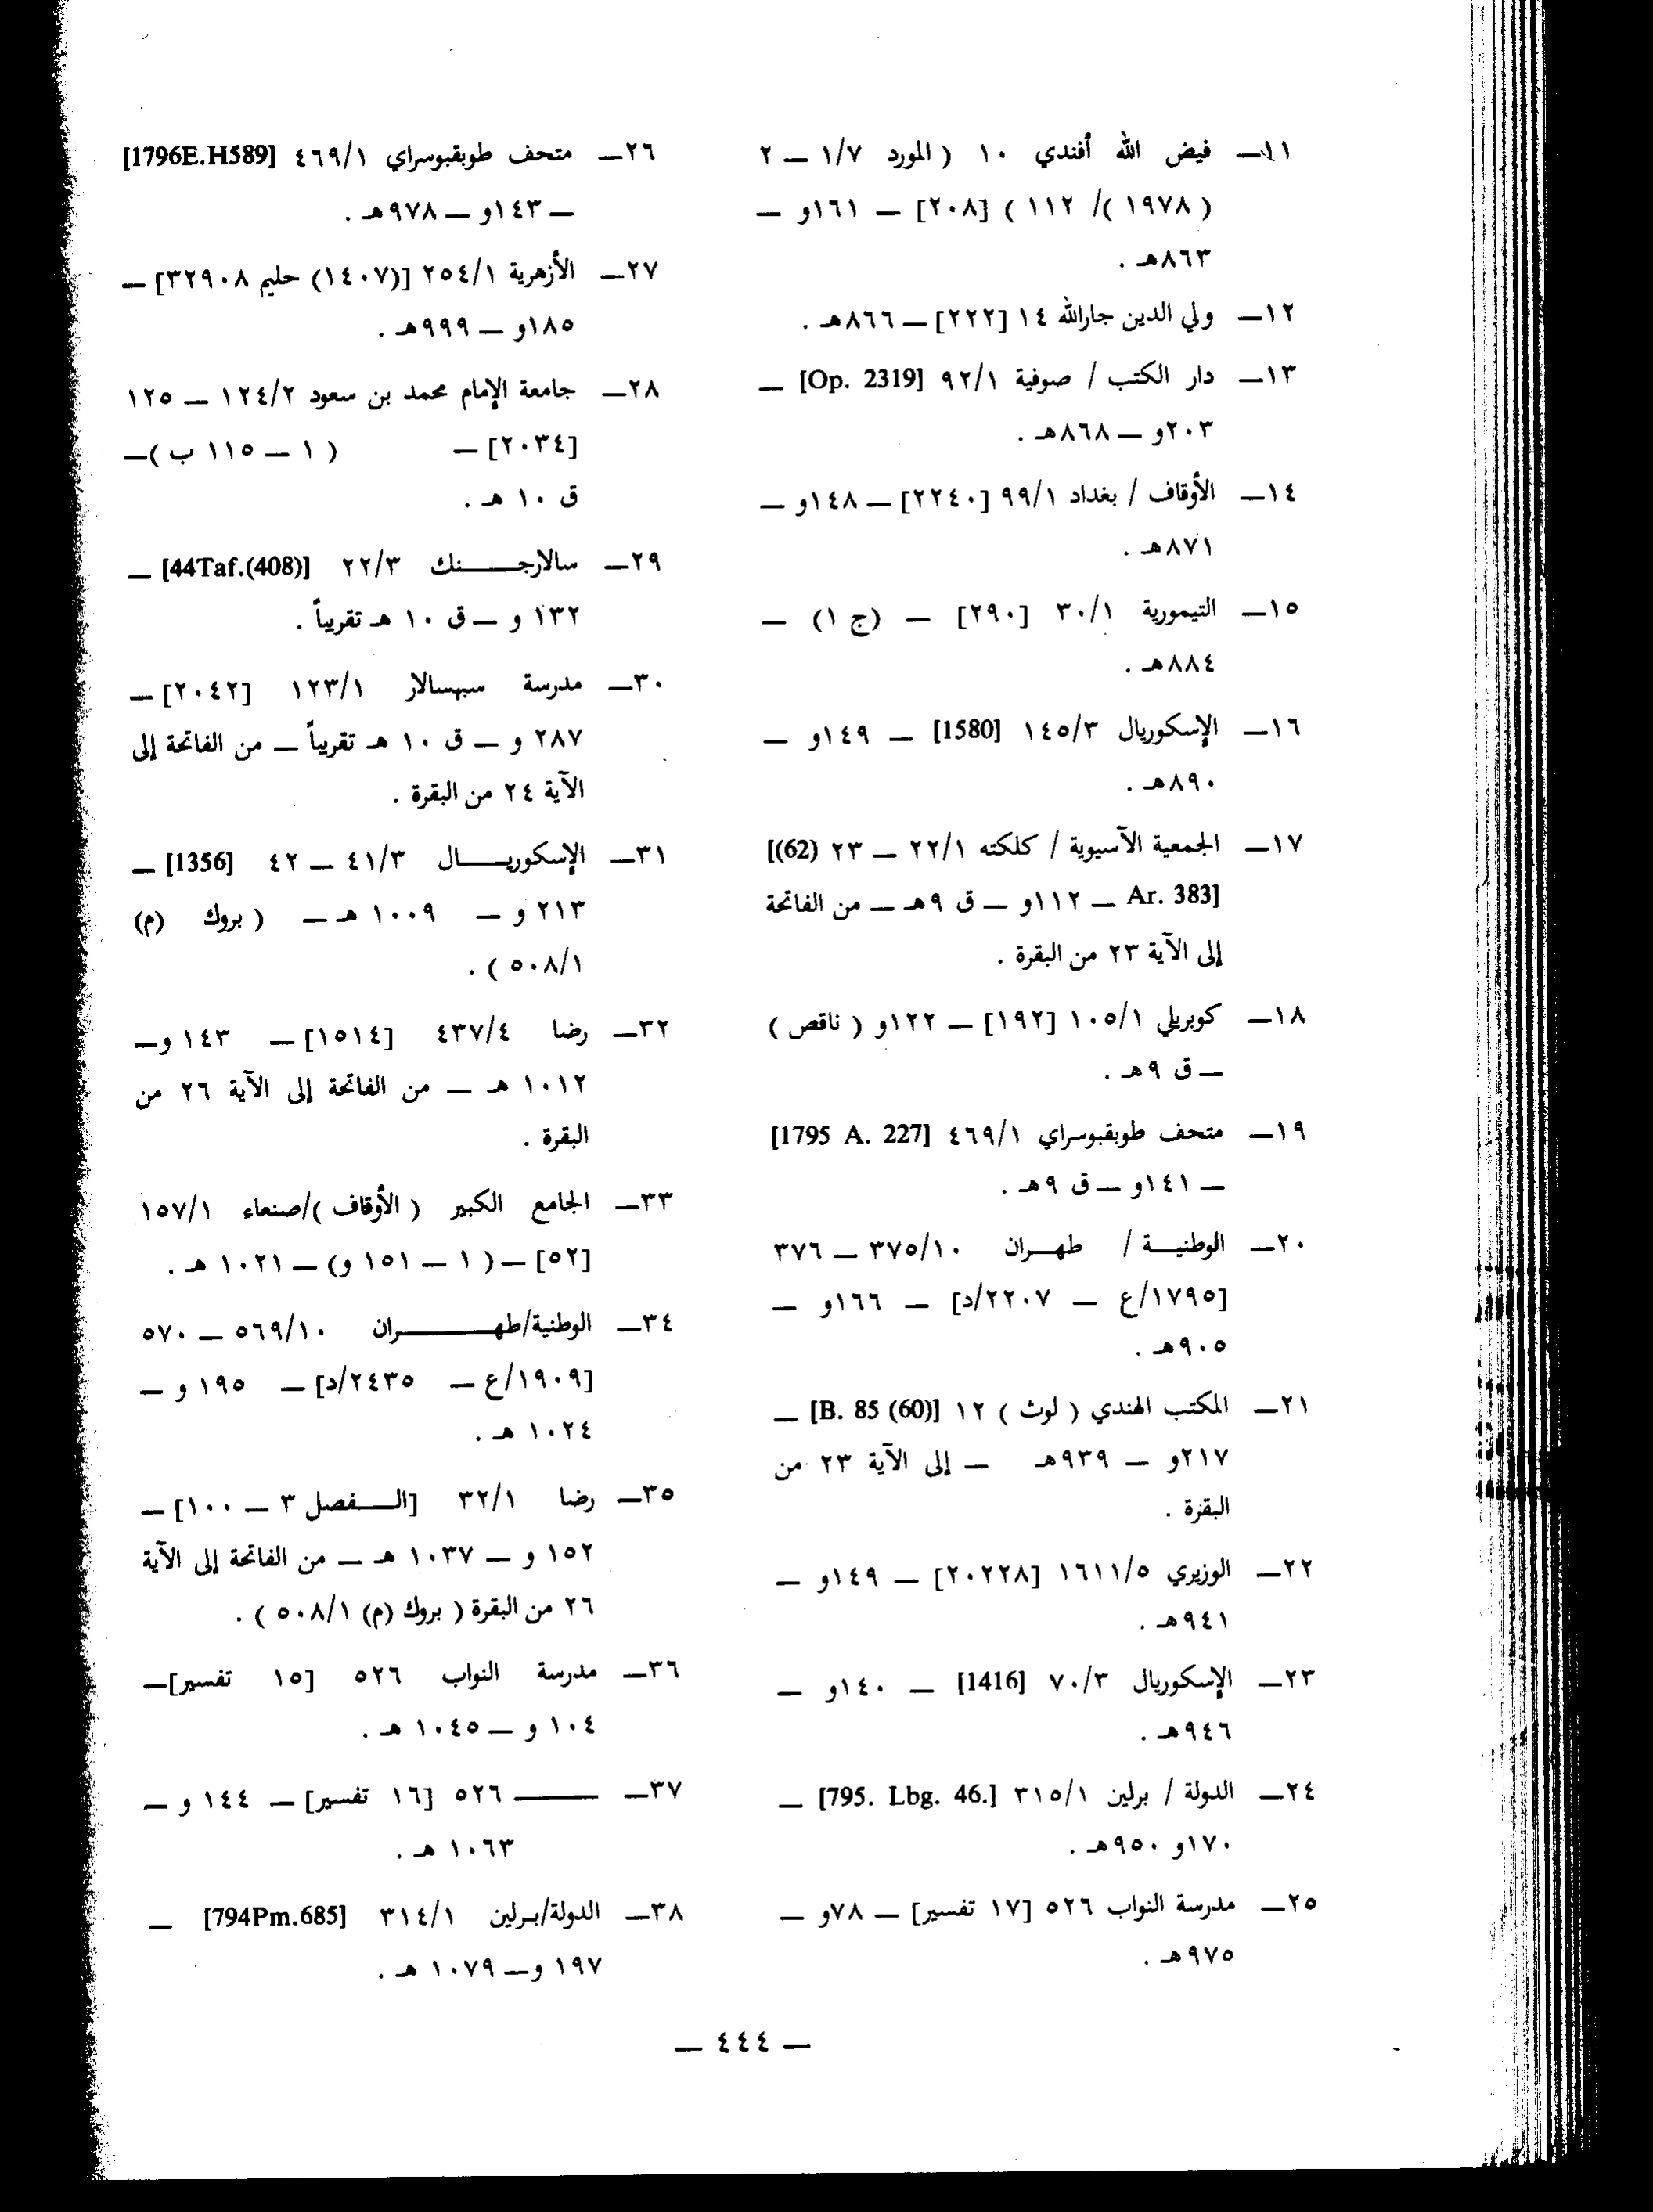 ١١ــ فيض الله أفندي ١٠ ( المورد ١/٧ ــ ٢
( ١٩٧٨ )/ ١١٢ ) [٢٠٨] ــ ١٦١و ــ
٨٦٣هـ .
١٢ــ ولي الدين جارالله ١٤ [٢٢٢] ــ ٨٦٦هـ .
١٣ــ دار الكتب / صوفية ٩٢/١ [Op. 2319] ــ
٢٠٣و ــ ٨٦٨هـ .
١٤ــ الأوقاف / بغداد ٩٩/١ [٢٢٤٠] ــ ١٤٨و ــ
٨٧١هـ .
١٥ــ التيمورية ٣٠/١ [٢٩٠] ــ (ج ١) ــ
٨٨٤هـ .
١٦ــ الإسكوريال ١٤٥/٣ [1580] ــ ١٤٩و ــ
٨٩٠هـ .
١٧ــ الجمعية الآسيوية / كلكته ٢٢/١ ــ ٢٣ [(62)
Ar. 383] ــ ١١٢و ــ ق ٩هـ ــ من الفاتحة
إلى الآية ٢٣ من البقرة .
١٨ــ كوبريلي ١٠٥/١ [١٩٢] ــ ١٢٢و ( ناقص )
ــ ق ٩هـ .
١٩ــ متحف طوبقبوسراي ٤٦٩/١ [1795 A. 227]
ــ ١٤١و ــ ق ٩هـ .
٢٠ــ الوطنيــة / طهــران ٣٧٥/١٠ ــ ٣٧٦
[١٧٩٥/ع ــ ٢٢٠٧/د] ــ ١٦٦و ــ
٩٠٥هـ .
٢١ــ المكتب الهندي ( لوث ) ١٢ [B. 85 (60)] ــ
٢١٧و ــ ٩٣٩هـ ــ إلى الآية ٢٣ من
البقرة .
٢٢ــ الوزيري ١٦١١/٥ [٢٠٢٢٨] ــ ١٤٩و ــ
٩٤١هـ .
٢٣ــ الإسكوريال ٧٠/٣ [1416] ــ ١٤٠و ــ
٩٤٦هـ .
٢٤ــ الدولة / برلين ٣١٥/١ [795. Lbg. 46.] ــ
١٧٠و ٩٥٠هـ .
٢٥ــ مدرسة النواب ٥٢٦ [١٧ تفسير] ــ ٧٨و ــ
٩٧٥هـ .
٢٦ــ متحف طوبقبوسراي ٤٦٩/١ [1796E.H589]
ــ ١٤٣و ــ ٩٧٨هـ .
٢٧ــ الأزهرية ٢٥٤/١ [(١٤٠٧) حليم ٣٢٩٠٨] ــ
١٨٥و ــ ٩٩٩هـ .
٢٨ــ جامعة الإمام محمد بن سعود ١٢٤/٢ ــ ١٢٥
[٢٠٣٤] ــ ( ١ ــ ١١٥ ب )ــ
ق ١٠ هـ .
٢٩ــ سالارجــــنك ٢٢/٣ [44Taf.(408)] ــ
١٣٢ و ــ ق ١٠ هـ تقريباً .
٣٠ــ مدرسة سبهسالار ١٢٣/١ [٢٠٤٢] ــ
٢٨٧ و ــ ق ١٠ هـ تقريباً ــ من الفاتحة إلى
الآية ٢٤ من البقرة .
٣١ــ الإسكوريــــال ٤١/٣ ــ ٤٢ [1356] ــ
٢١٣ و ــ ١٠٠٩ هـ ــ ( بروك (م)
٥٠٨/١ ) .
٣٢ــ رضا ٤٣٧/٤ [١٥١٤] ــ ١٤٣ وــ
١٠١٢ هـ ــ من الفاتحة إلى الآية ٢٦ من
البقرة .
٣٣ــ الجامع الكبير ( الأوقاف )/صنعاء ١٥٧/١
[٥٢] ــ ( ١ ــ ١٥١ و) ــ ١٠٢١ هـ .
٣٤ــ الوطنية/طهــــــران ٥٦٩/١٠ ــ ٥٧٠
[١٩٠٩/ع ــ ٢٤٣٥/د] ــ ١٩٥ و ــ
١٠٢٤ هـ .
٣٥ــ رضا ٣٢/١ [الــفصل ٣ ــ ١٠٠] ــ
١٥٢ و ــ ١٠٣٧ هـ ــ من الفاتحة إلى الآية
٢٦ من البقرة ( بروك (م) ٥٠٨/١ ) .
٣٦ــ مدرسة النواب ٥٢٦ [١٥ تفسير]ــ
١٠٤ و ــ ١٠٤٥ هـ .
٣٧ــ ـــــــ ٥٢٦ [١٦ تفسير] ــ ١٤٤ و ــ
١٠٦٣ هـ .
٣٨ــ الدولة/برلين ٣١٤/١ [794Pm.685] ــ
١٩٧ وــ ١٠٧٩ هـ .
ــ ٤٤٤ ــ